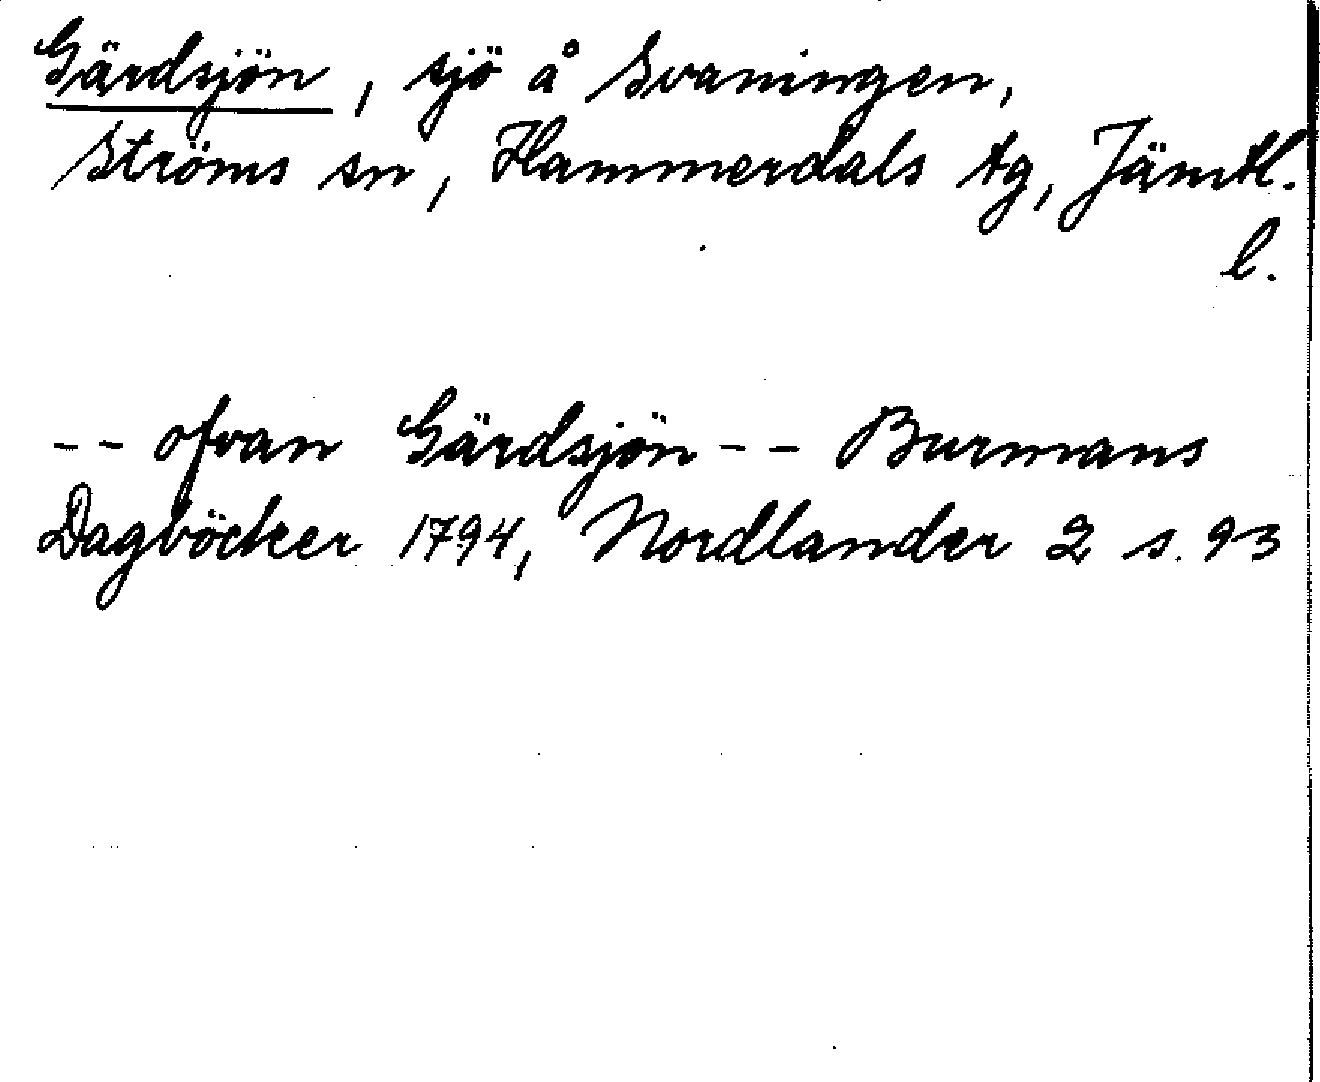 Gärdsjön, sjö å Svaningen,
Ströms sn, Hammerdals tg, Jämtl.
l.
-- ofvan Gärdsjön -- Burmans
Dagböcker 1794, Nordlander 2 s. 93